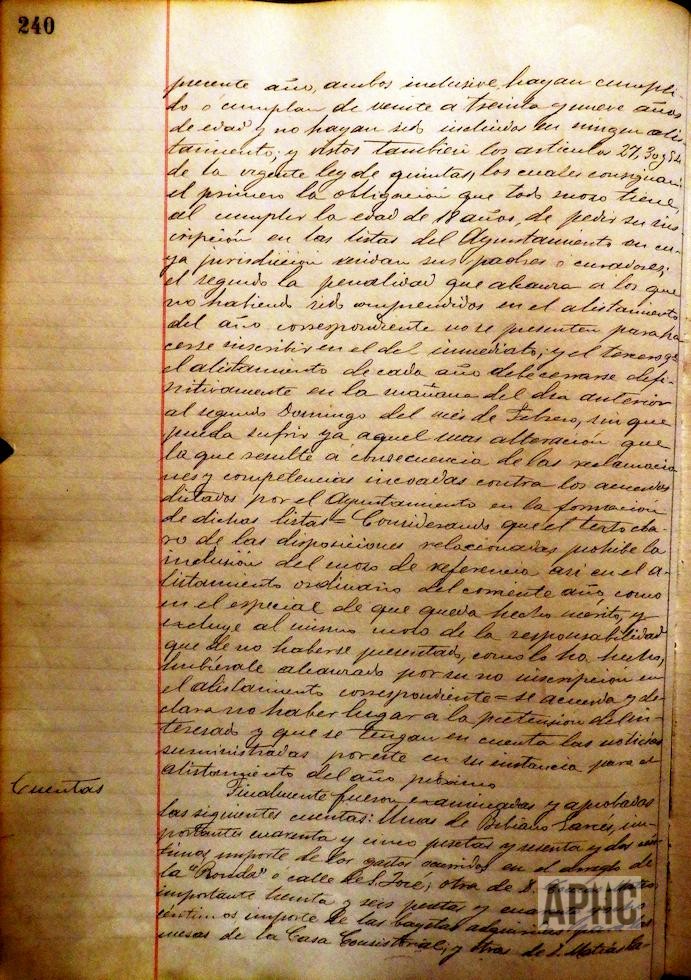 240
presente año, ambos inclusive, hayan cumpli-
do o cumplan de veinte a treinta y nueve años
de edad y no hayan sido incluidos en ningun alis-
tamiento; y vistos tambien los articulos 27, 30 y 54
de la vigente ley de quintas, los cuales consignan:
el primero la obligacion que todo mozo tiene,
al cumplir la edad de 18 años, de pedir su ins-
cripcion en las listas del Ayuntamiento en cu-
ya jurisdiccion residan sus padres o curadores;
el segundo la penalidad que alcanza a los que
no habiendo sido comprendidos en el alistamiento
del año correspondiente no se presenten para ha-
cerse inscribir en el del inmediato; y el tercero que
el alistamiento de cada año debe cerrarse defi-
nitivamente en la mañana del dia anterior
al segundo Domingo del mes de Febrero, sin que
pueda sufrir ya aquel mas alteracion que
la que resulte a consecuencia de las reclamacio-
nes y competencias incoadas contra los acuerdos
dictados por el Ayuntamiento en la formacion
de dichas listas = Considerando que el texto cla-
ro de las disposiciones relacionadas prohibe la
inclusion del mozo de referencia asi en el a-
listamiento ordinario del corriente año, como
en el especial de que queda hecho merito, y
excluye al mismo mozo de la responsabilidad
que de no haberse presentado, como lo ha hecho,
hubierale alcanzado por su no inscripcion en
el alistamiento correspondiente = se acuerda y de-
clara no haber lugar a la pretension del in-
teresado y que se tengan en cuenta las noticias
suministradas por este en su instancia para el
alistamiento del año proximo
Cuentas
Finalmente fueron examinadas y aprobadas
las siguientes cuentas: Unas de Bibiano Garcés, im-
portantes cuarenta y cinco pesetas y sesenta y dos cén-
timos, importe de los gastos ocurridos en el arreglo de
la "Ronda" o calle de S. José; otra de D.
importante treinta y seis pesetas y
céntimos, importe de las bayetas adquiridas para las
mesas de la Casa Consistorial; y otras de D. Matías
APHC